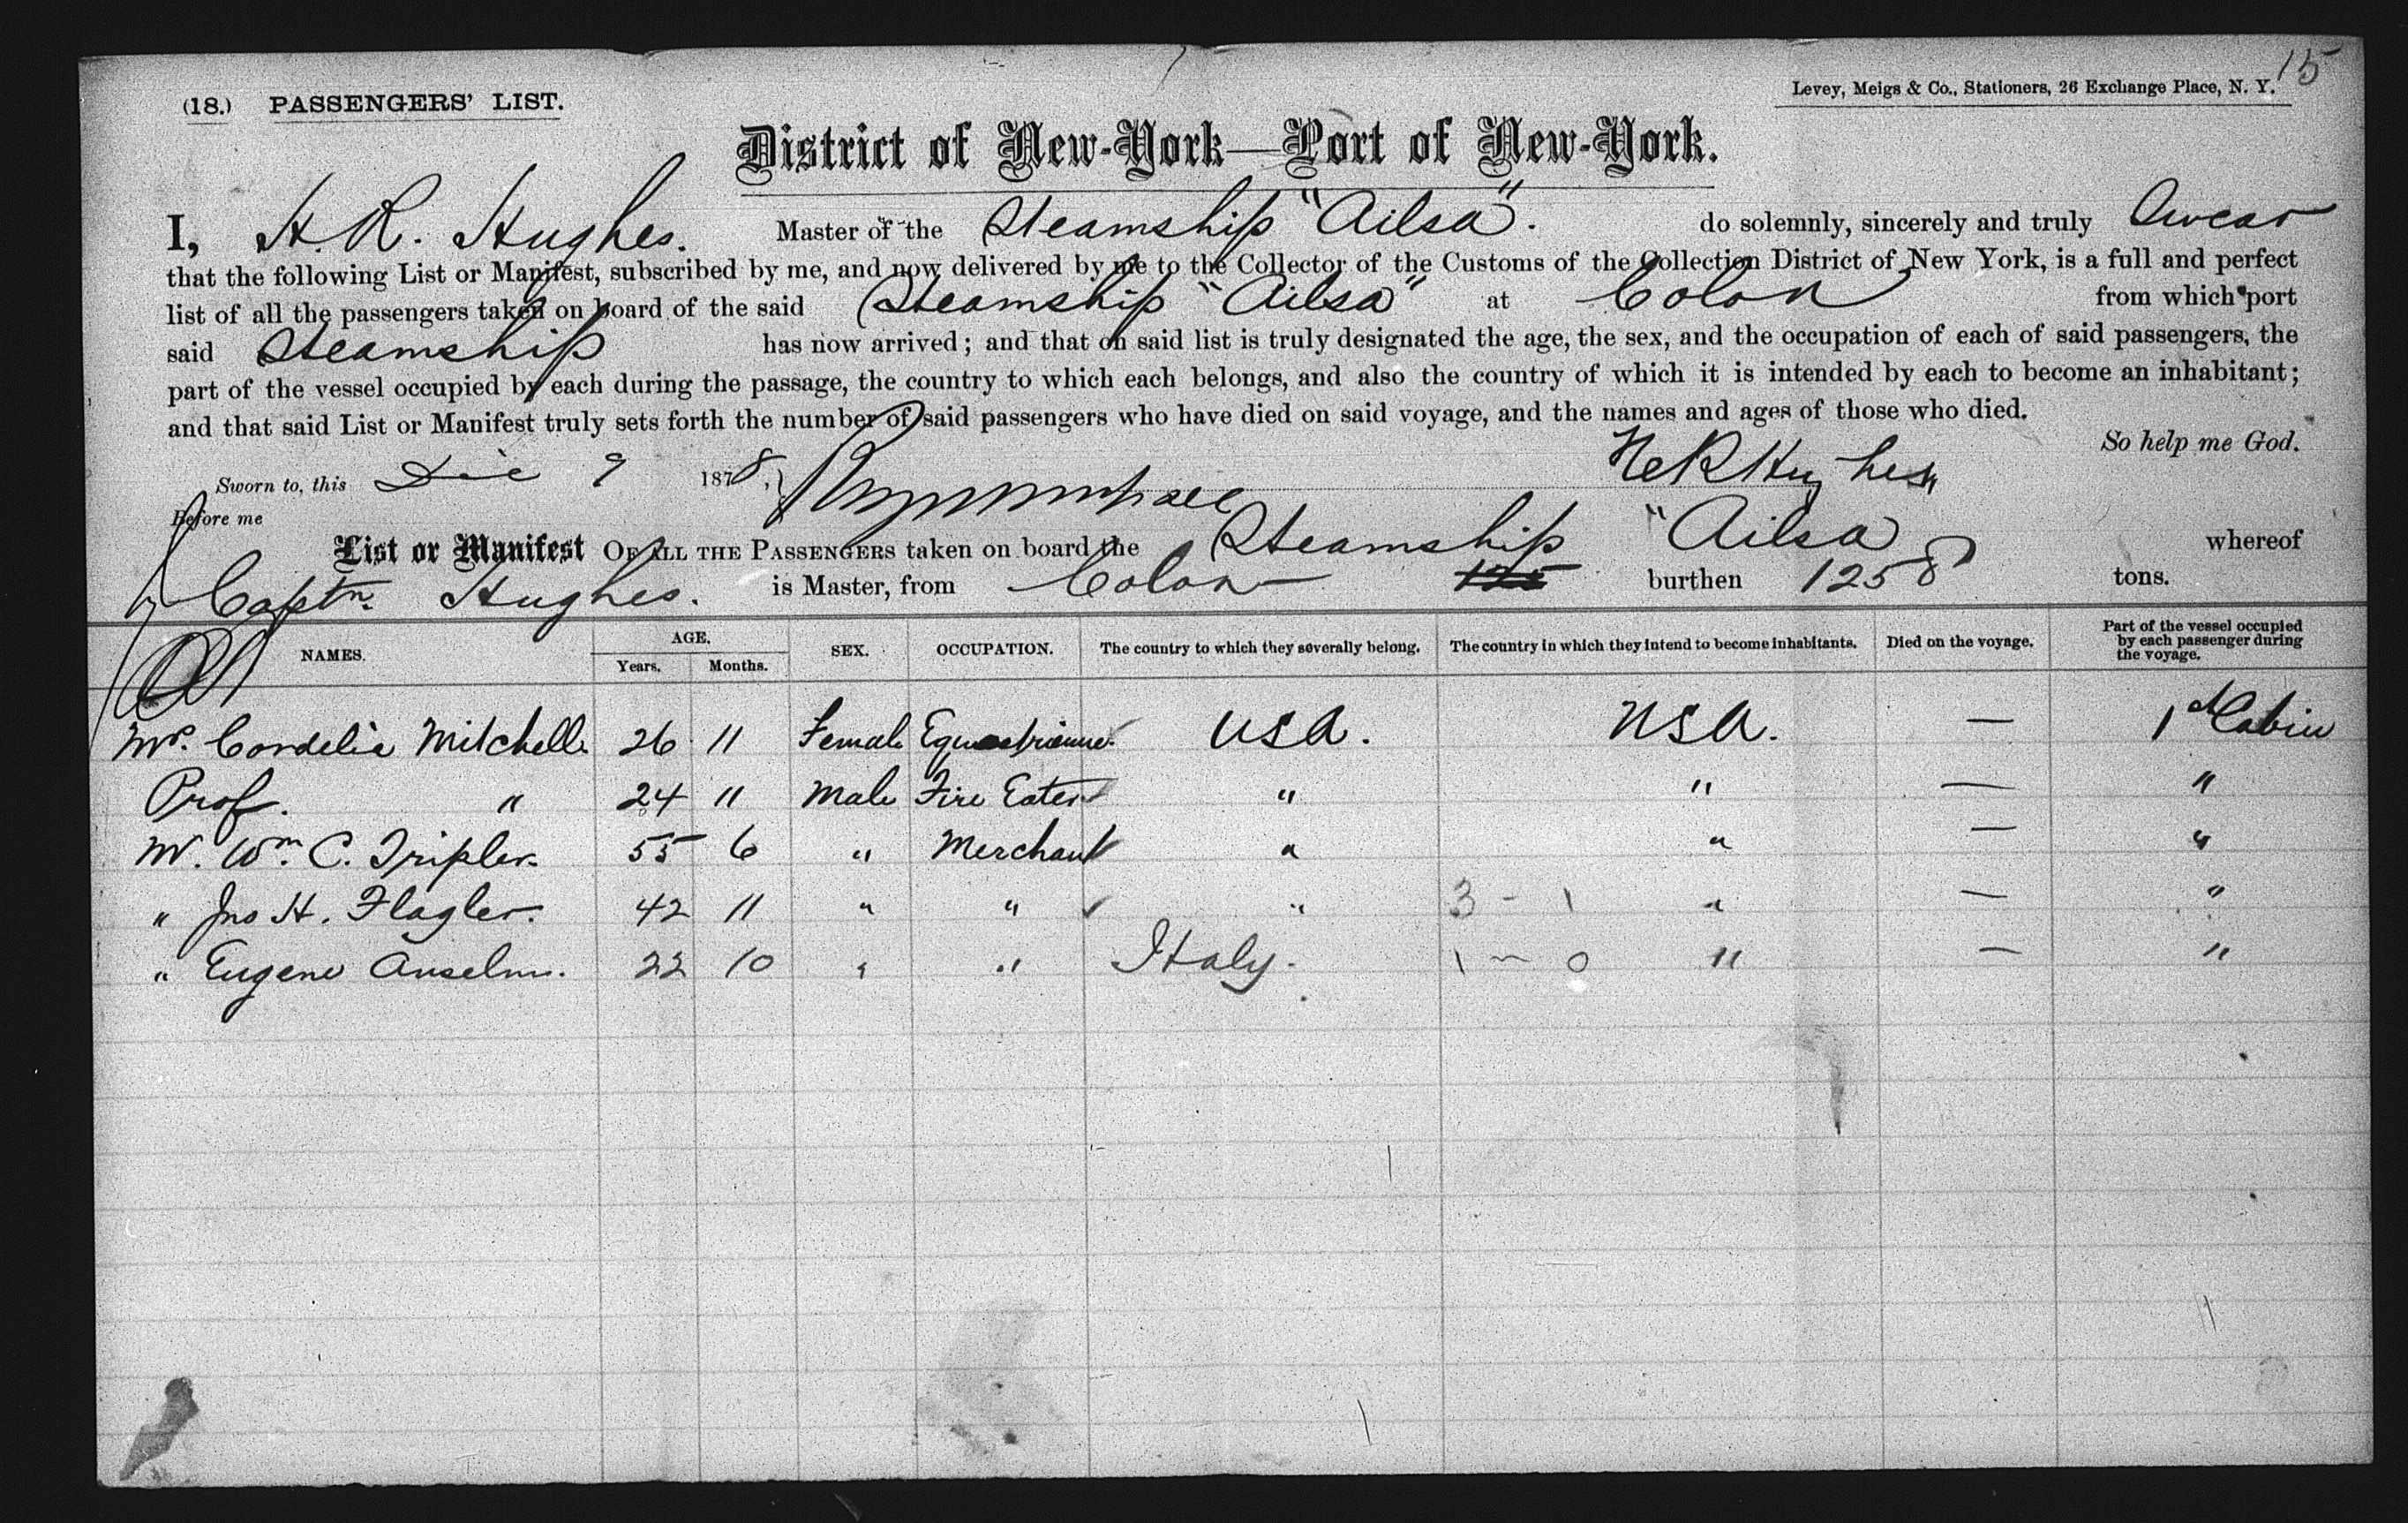 15
(18.) PASSENGERS' LIST. Levey, Meigs & Co., Stationers, 26 Exchange Place, N. Y.
District of New-York—Port of New-York.
I, H. R. Hughes. Master of the Steamship "Ailsa". do solemnly, sincerely and truly Swear
that the following List or Manifest, subscribed by me, and now delivered by me to the Collector of the Customs of the Collection District of New York, is a full and perfect
list of all the passengers taken on board of the said Steamship "Ailsa" at Colon from which port
said Steamship has now arrived; and that on said list is truly designated the age, the sex, and the occupation of each of said passengers, the
part of the vessel occupied by each during the passage, the country to which each belongs, and also the country of which it is intended by each to become an inhabitant;
and that said List or Manifest truly sets forth the number of said passengers who have died on said voyage, and the names and ages of those who died.
So help me God.
Sworn to, this Dec 9 1878, Hughes
Before me
List or Manifest OF ALL THE PASSENGERS taken on board the Steamship "Ailsa whereof
Captn. Hughes. is Master, from Colon burthen 1258 tons.
NAMES. AGE. Years. Months. SEX. OCCUPATION. The country to which they severally belong. The country in which they intend to become inhabitants. Died on the voyage. Part of the vessel occupied by each passenger during the voyage.
Mrs. Cordelia Mitchell 26 11 Female Equestrienne. USA. USA. — 1st Cabin
Prof. " 24 11 Male Fire Eater " " — "
Mr. Wm. C. Tripler. 55 6 " Merchant " " — "
" Jno H. Flagler. 42 11 " " " 3 - 1 " — "
" Eugene Anselm. 22 10 " " Italy. 1 - 0 " — "